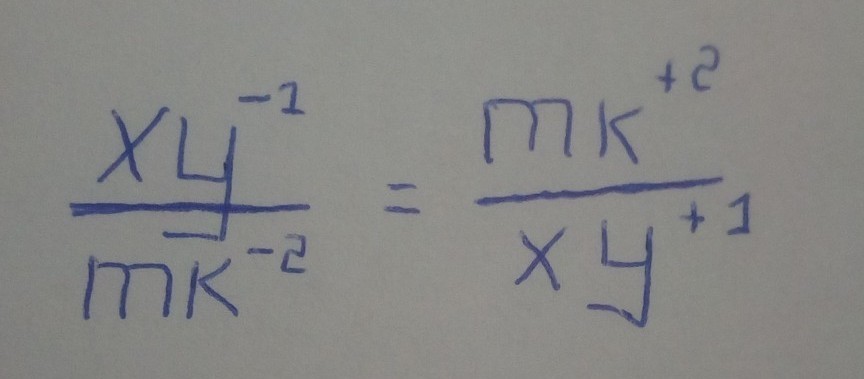 xy^{-1}/mk^{-2} = mk^{+2}/xy^{+1}